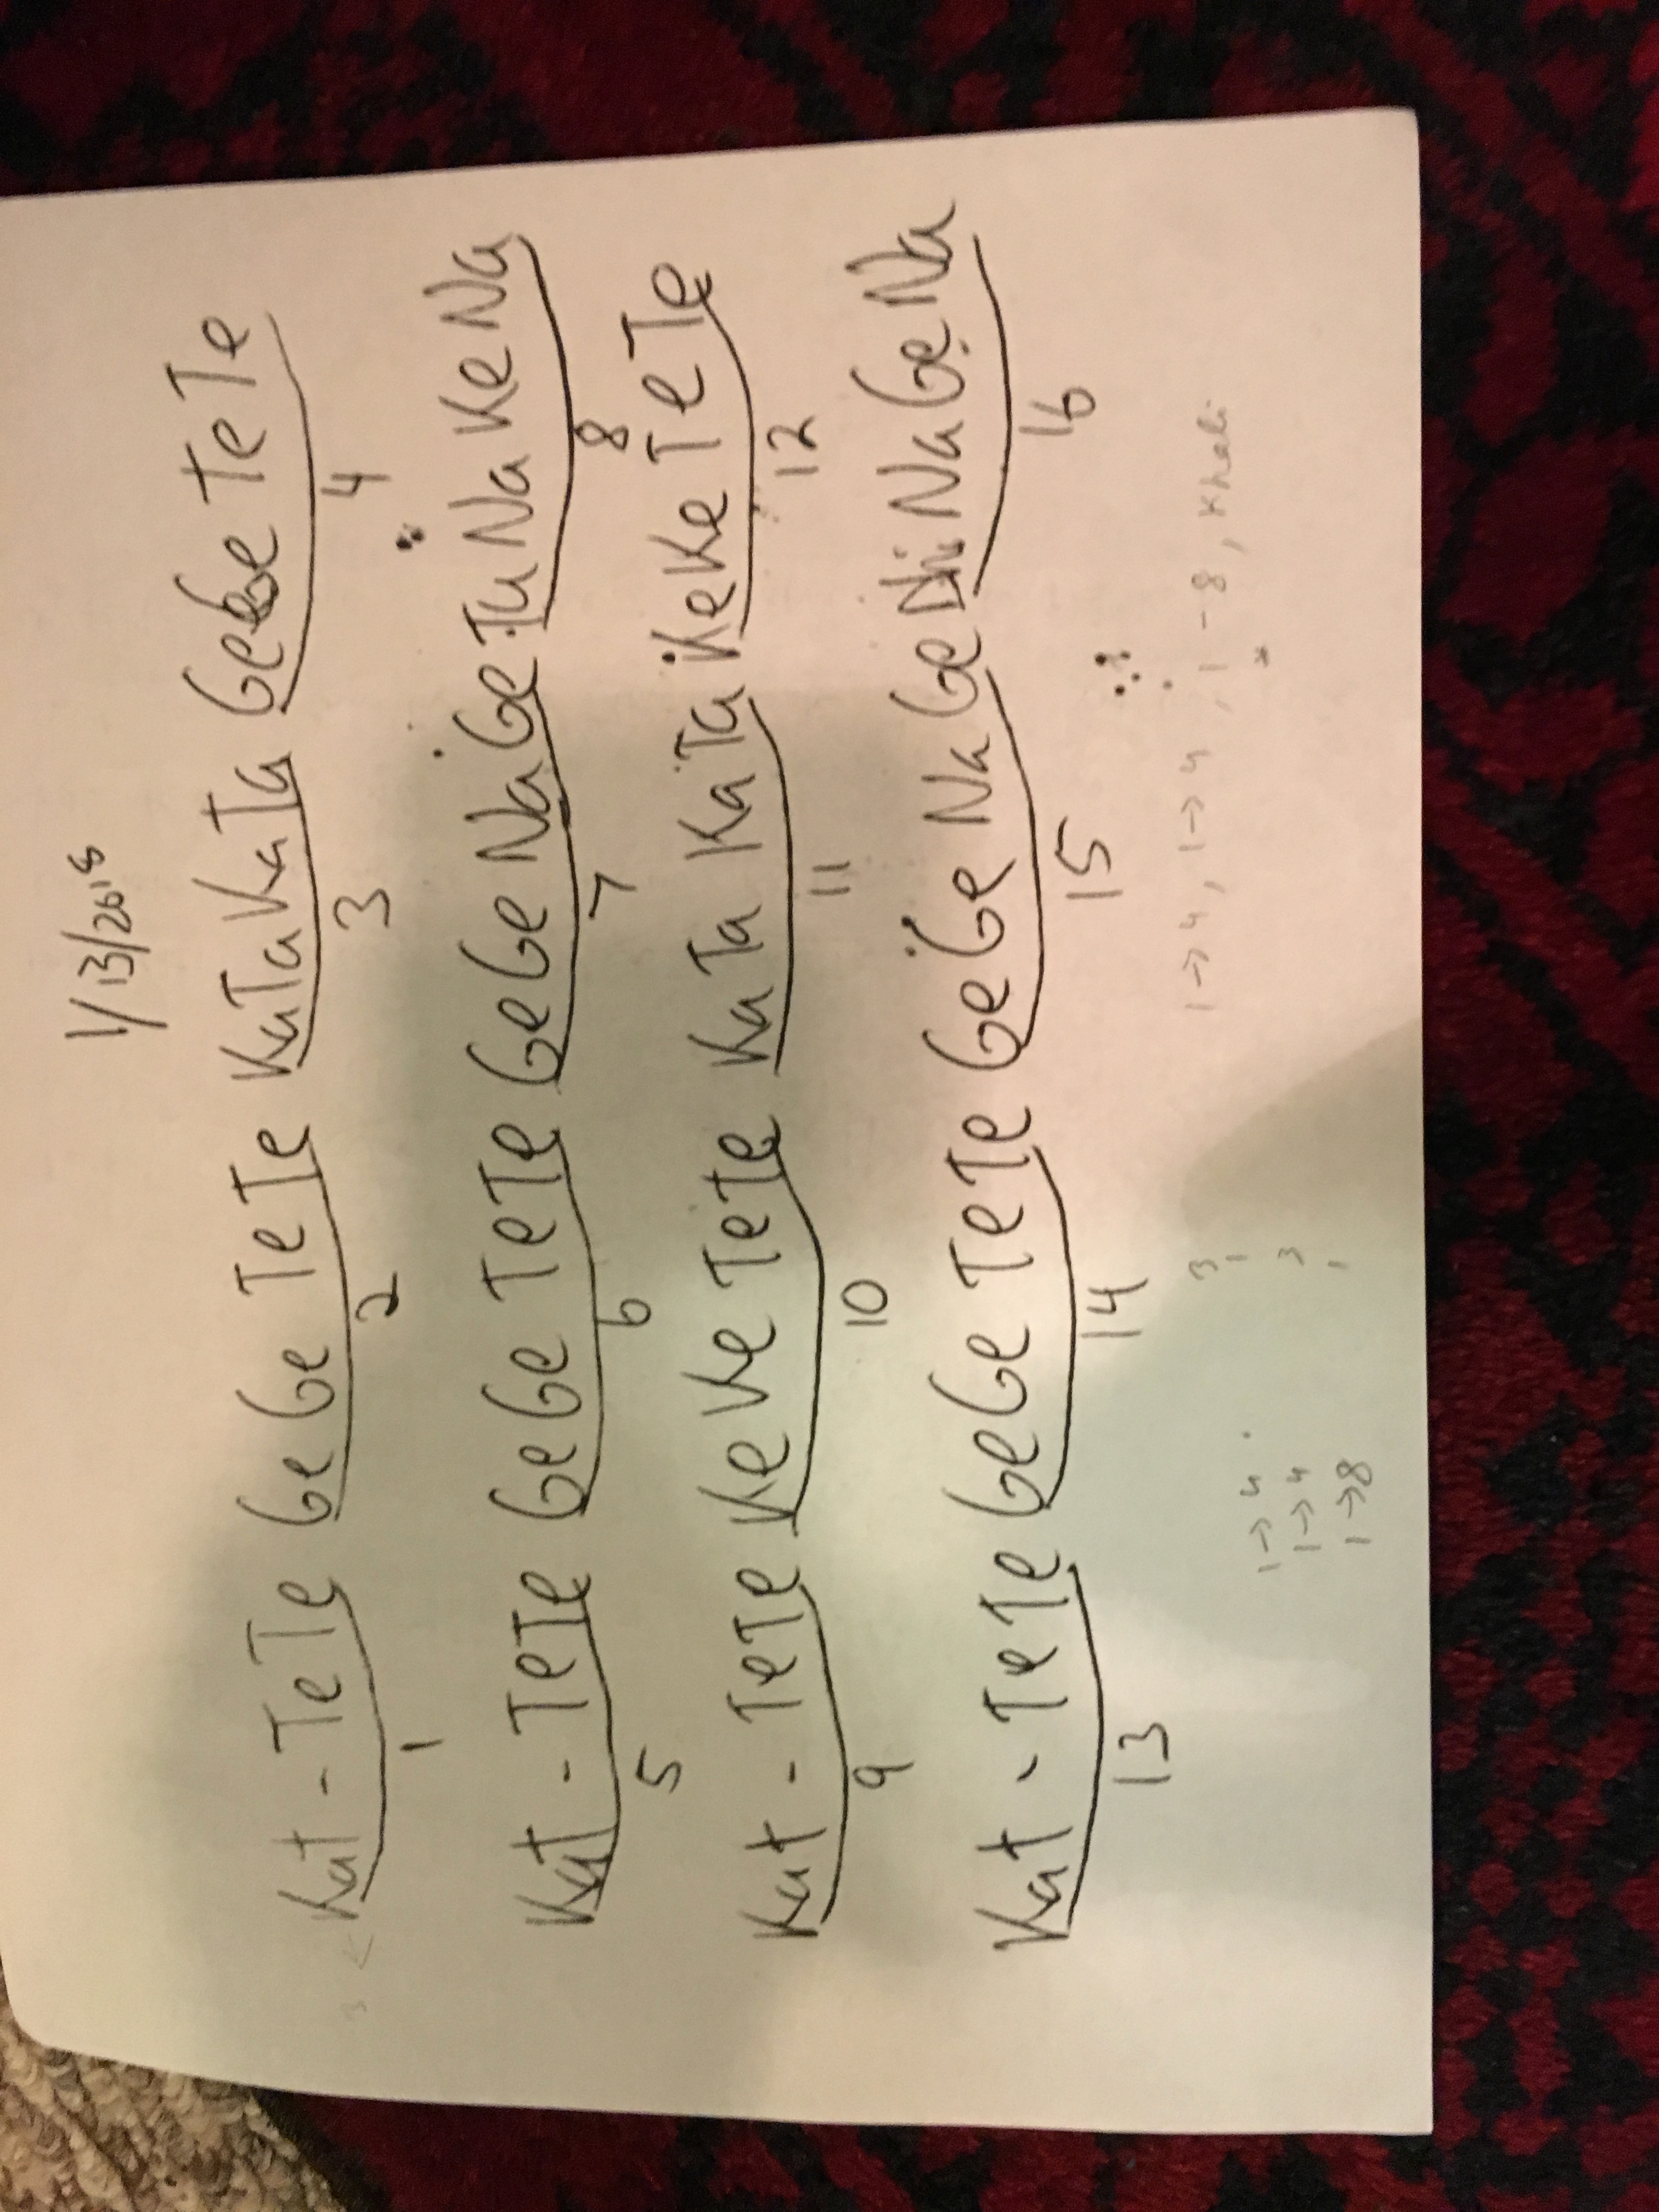 1/13/2018
Kat - TeTe GeGe TeTe KaTaKaTa GeGe TeTe
1 2 3 4
Kat - TeTe GeGe TeTe GeGe NaGe TuNaKeNa
5 6 7 8
Kat - TeTe KeKe TeTe KaTa KaTa KeKe TeTe
9 10 11 12
Kat - TeTe GeGe TeTe GeGe NaGe DhiNaGeNa
13 14 15 16
1→4, 1→4, 1-8, Khali
3
1
3
1
1→4
1→4
1→8